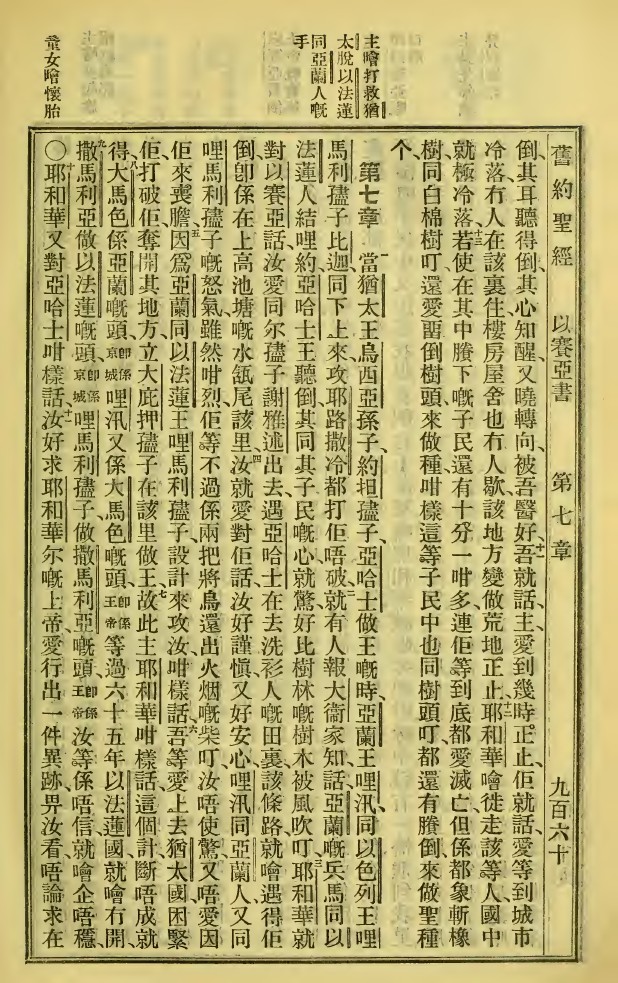 舊約聖經 以賽亞書 第七章 九百六十
主噲打救猶
太脫以法蓮
同亞蘭人嘅
手
童女噲懷胎
倒、其耳聽得倒、其心知醒、又曉轉向、被吾醫好、十一吾就話、主、愛到幾時正止、佢就話、愛等到城市
冷落冇人在該裏住、樓房屋舍也冇人歇、該地方變做荒地正止、十二耶和華噲徙走該等人、國中
就極冷落、十三若使在其中賸下嘅子民、還有十分一咁多、連佢等到底都愛滅亡、但係都象斬橡
樹同白棉樹叮、還愛畱倒樹頭來做種、咁樣這等子民中、也同樹頭叮、都還有賸倒、來做聖種
个、
第七章 一當猶太王烏西亞孫子、約坦孽子、亞哈士做王嘅時、亞蘭王哩汛、同以色列王哩
馬利孽子比迦、同下上來攻耶路撒冷、都打佢唔破、二就有人報大衛家知、話亞蘭嘅兵馬、同以
法蓮人結哩約、亞哈士王聽倒、其同其子民嘅心就驚、好比樹林嘅樹木、被風吹叮、三耶和華就
對以賽亞話、汝愛同尔孽子謝雅述出去、遇亞哈士、在去洗衫人嘅田裏、該條路、就噲遇得佢
倒、卽係在上高池塘嘅水瓴尾該里、四汝就愛對佢話、汝好謹愼、又好安心、哩汛同亞蘭人、又同
哩馬利孽子嘅怒氣、雖然咁烈、佢等不過係兩把將烏還出火烟嘅柴叮、汝唔使驚、又唔愛因
佢來喪膽、五因爲亞蘭同以法蓮王、哩馬利孽子、設計來攻汝、咁樣話、六吾等愛上去猶太國、困緊
佢、打破佢、奪開其地方、立大庇押孽子在該里做王、七故此主耶和華咁樣話、這個計斷唔成就
得、八大馬色係亞蘭嘅頭、卽係京城哩汛又係大馬色嘅頭、卽係王帝等過六十五年、以法蓮國就噲冇開、
九撒馬利亞做以法蓮嘅頭、卽係京城哩馬利孽子、做撒馬利亞嘅頭、卽係王帝汝等係唔信、就噲企唔穩、
〇十耶和華又對亞哈士咁樣話、十一汝好求耶和華尔嘅上帝、愛行出一件異跡、畀汝看、唔論求在